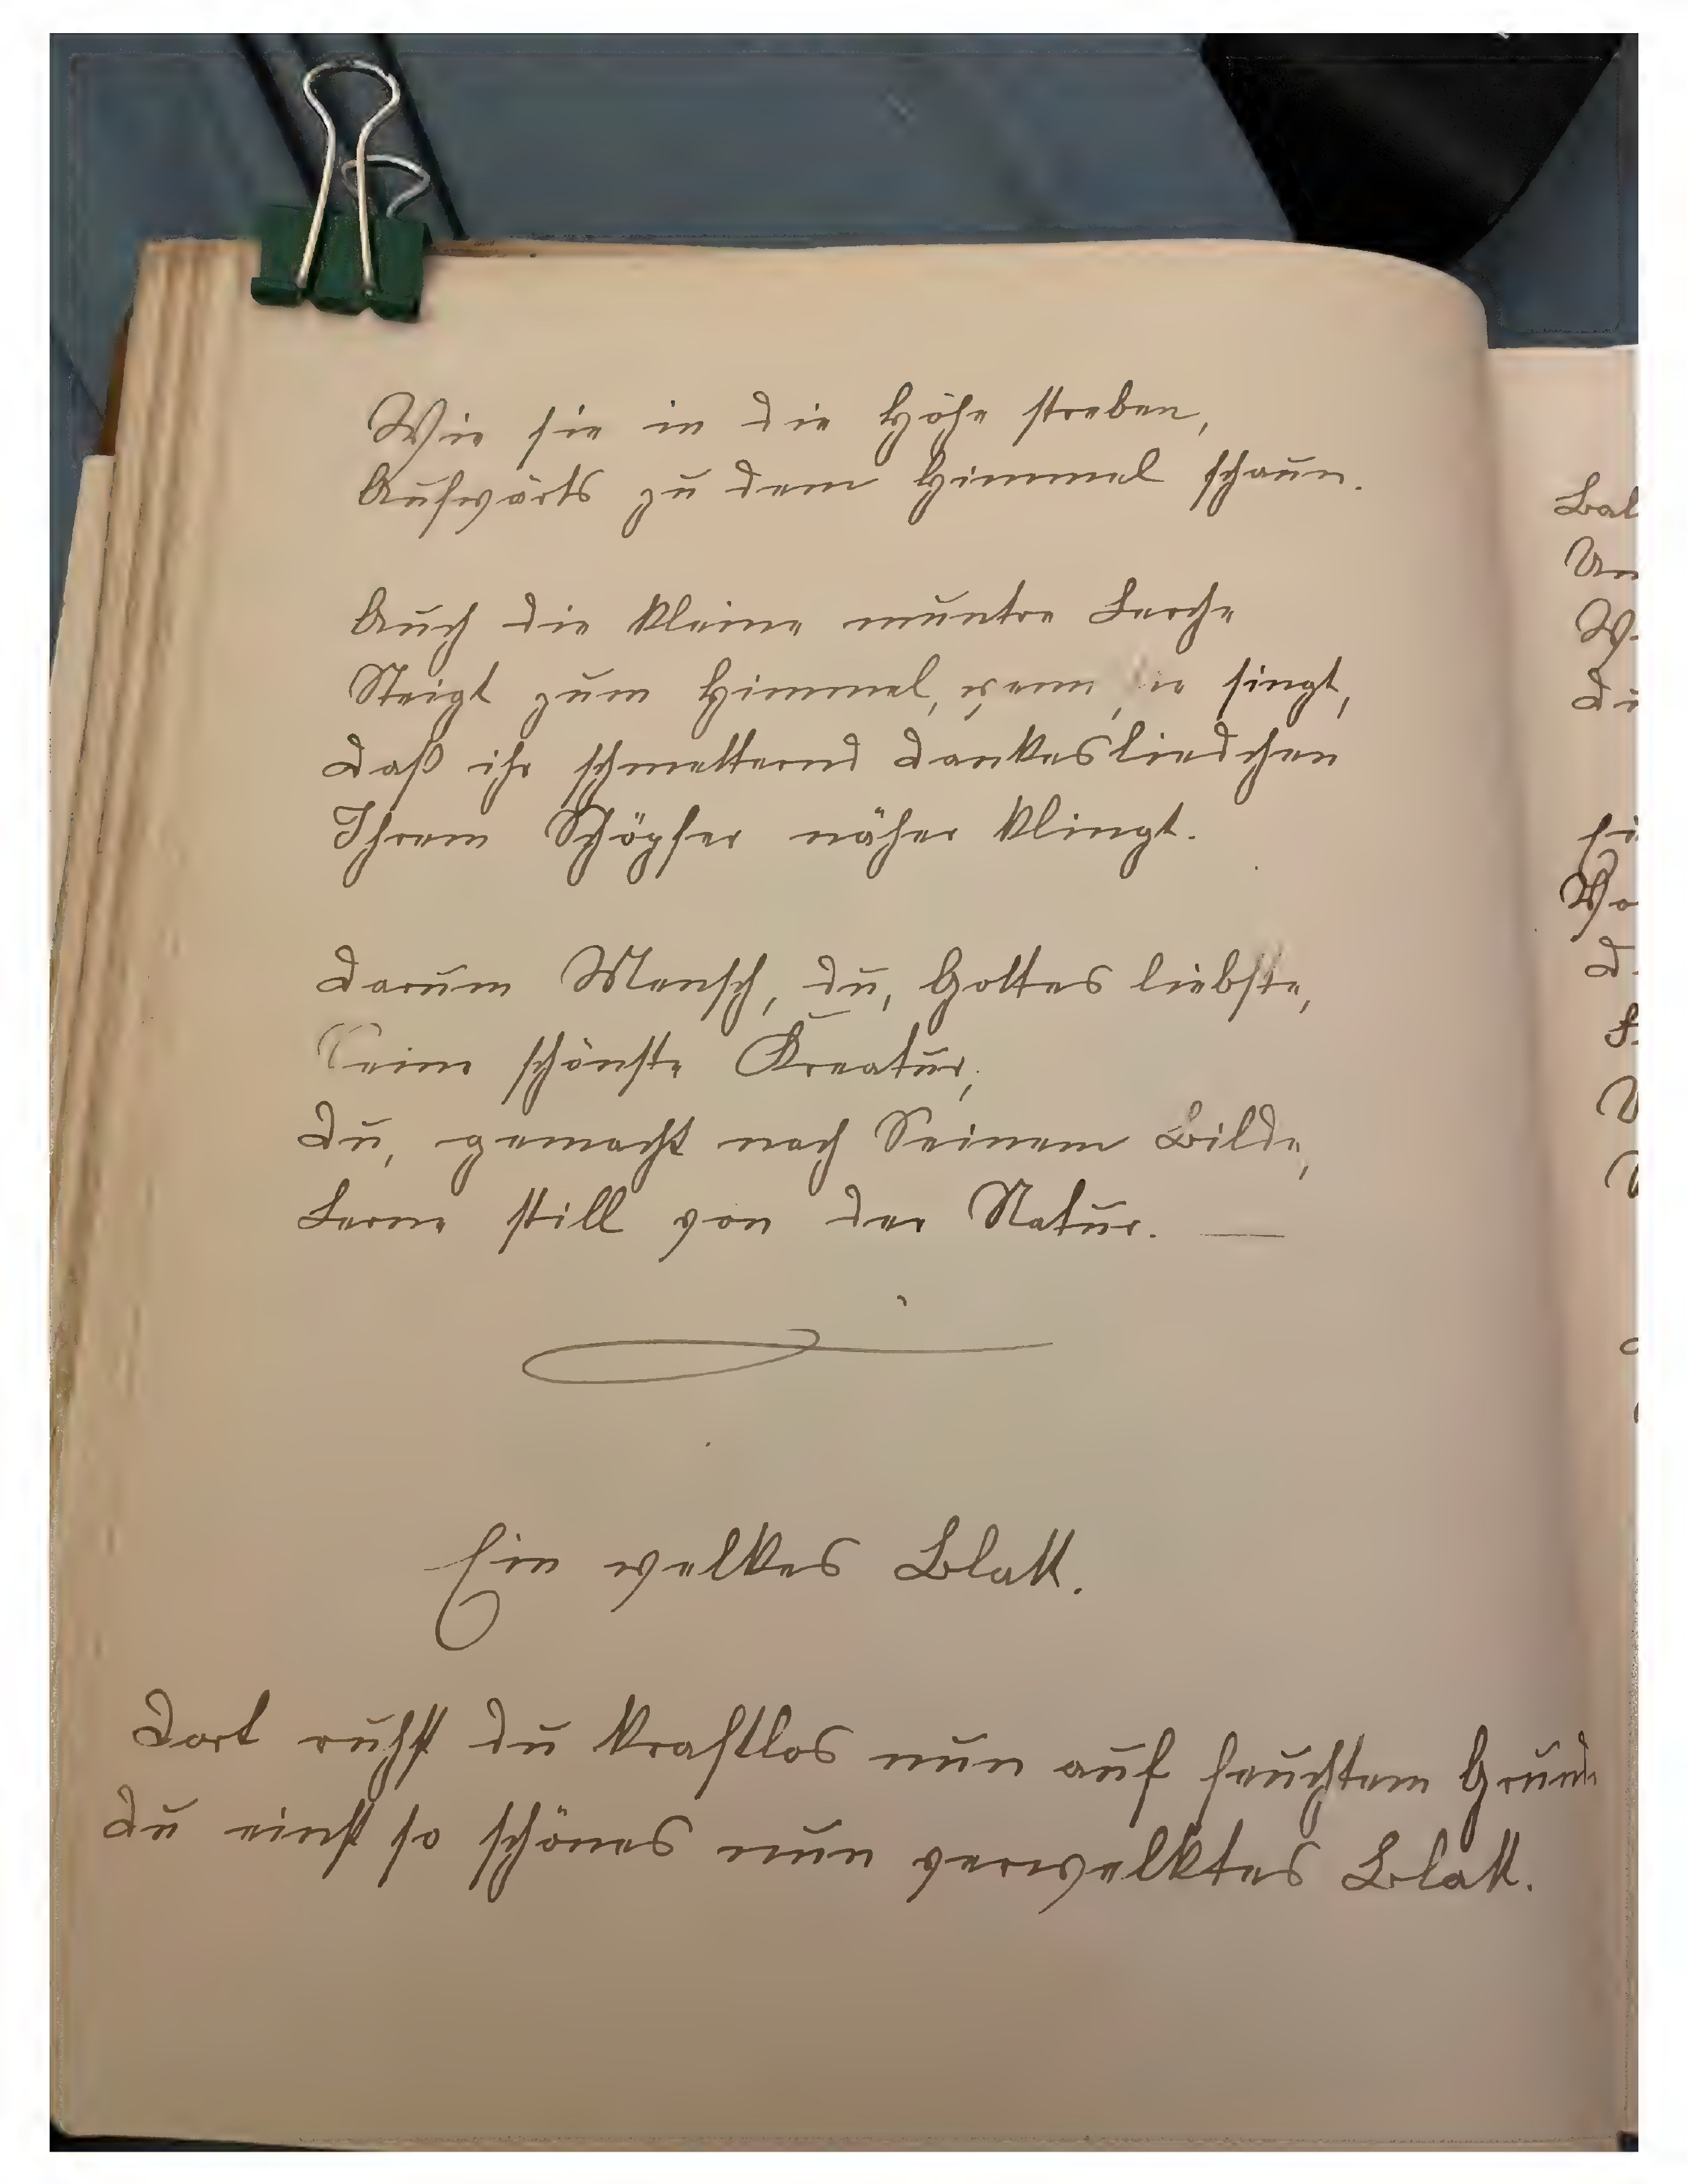 Wie sie in die Höhe streben,
Aufwärts zu dem Himmel schaun.
Auch die kleine muntre Lerche
Steigt zum Himmel, wenn sie singt,
Daß ihr schmetternd Dankesliedchen
Ihrem Schöpfer näher klingt.
Darum Mensch, du, Gottes liebste,
Seine schönste Kreatur,
Du, gemacht nach Seinem Bilde,
Lerne still von der Natur. —
Ein welkes Blatt.
Dort ruhst du kraftlos nun auf feuchtem Grund
Du einst so schönes nun verwelktes Blatt.